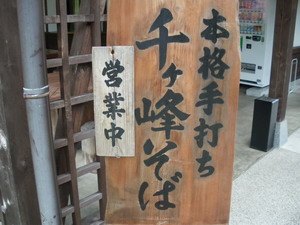 本格手打ち
千ヶ峰そば
営業中